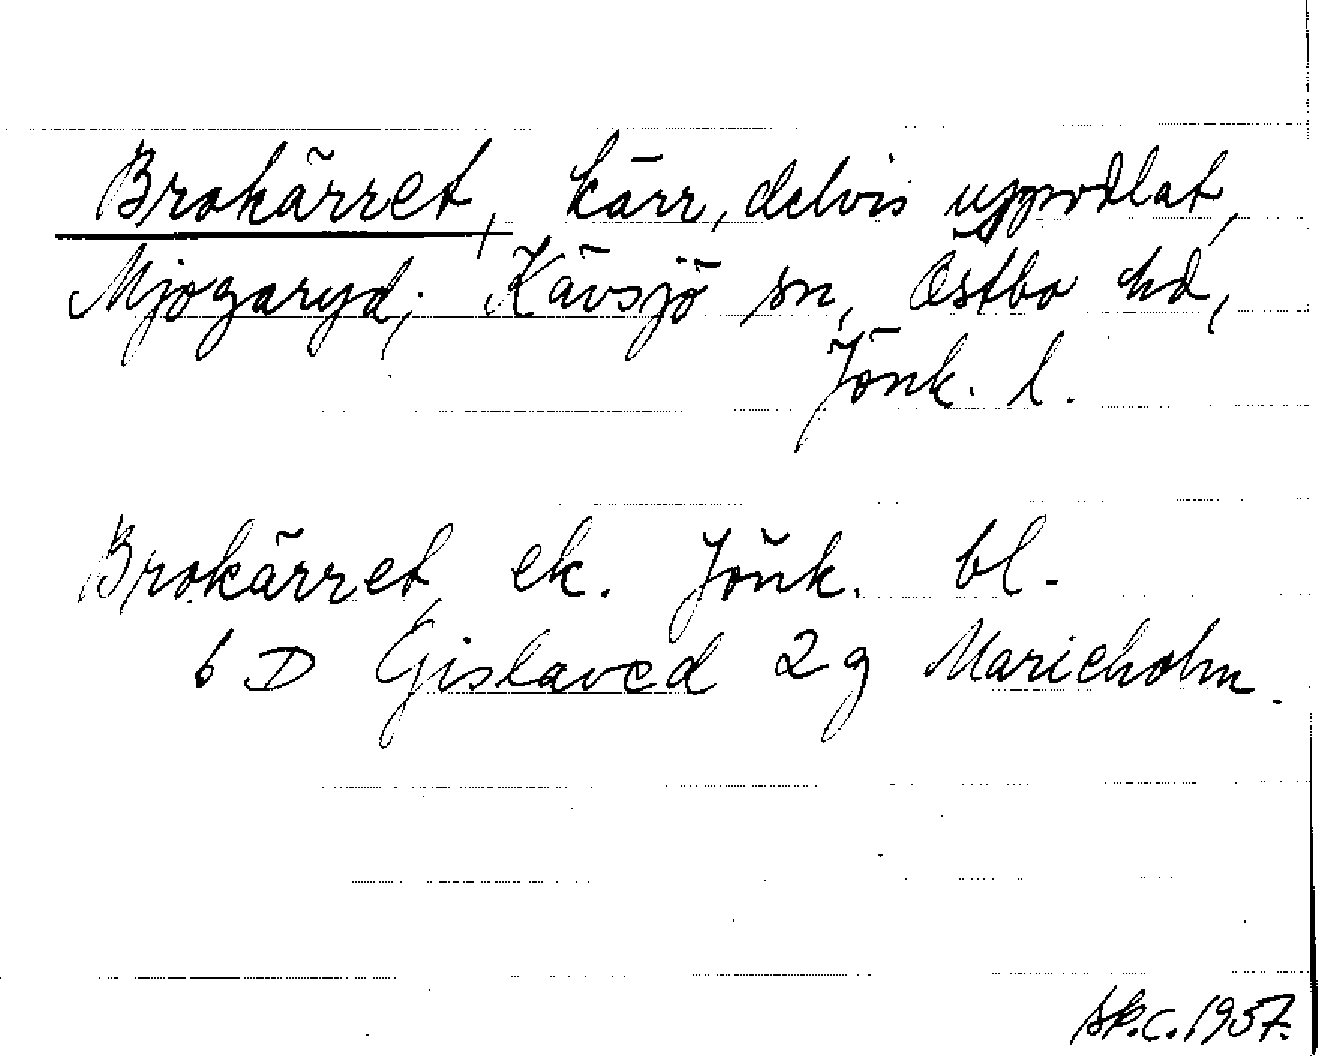 Brokärret, kärr, delvis uppodlat,
Mjogaryd, Kävsjö sn, Östbo hd,
Jönk. l.
Brokärret ek. Jönk. bl.
6 D Gislaved 2 g Marieholm.
sk.c. 1957.